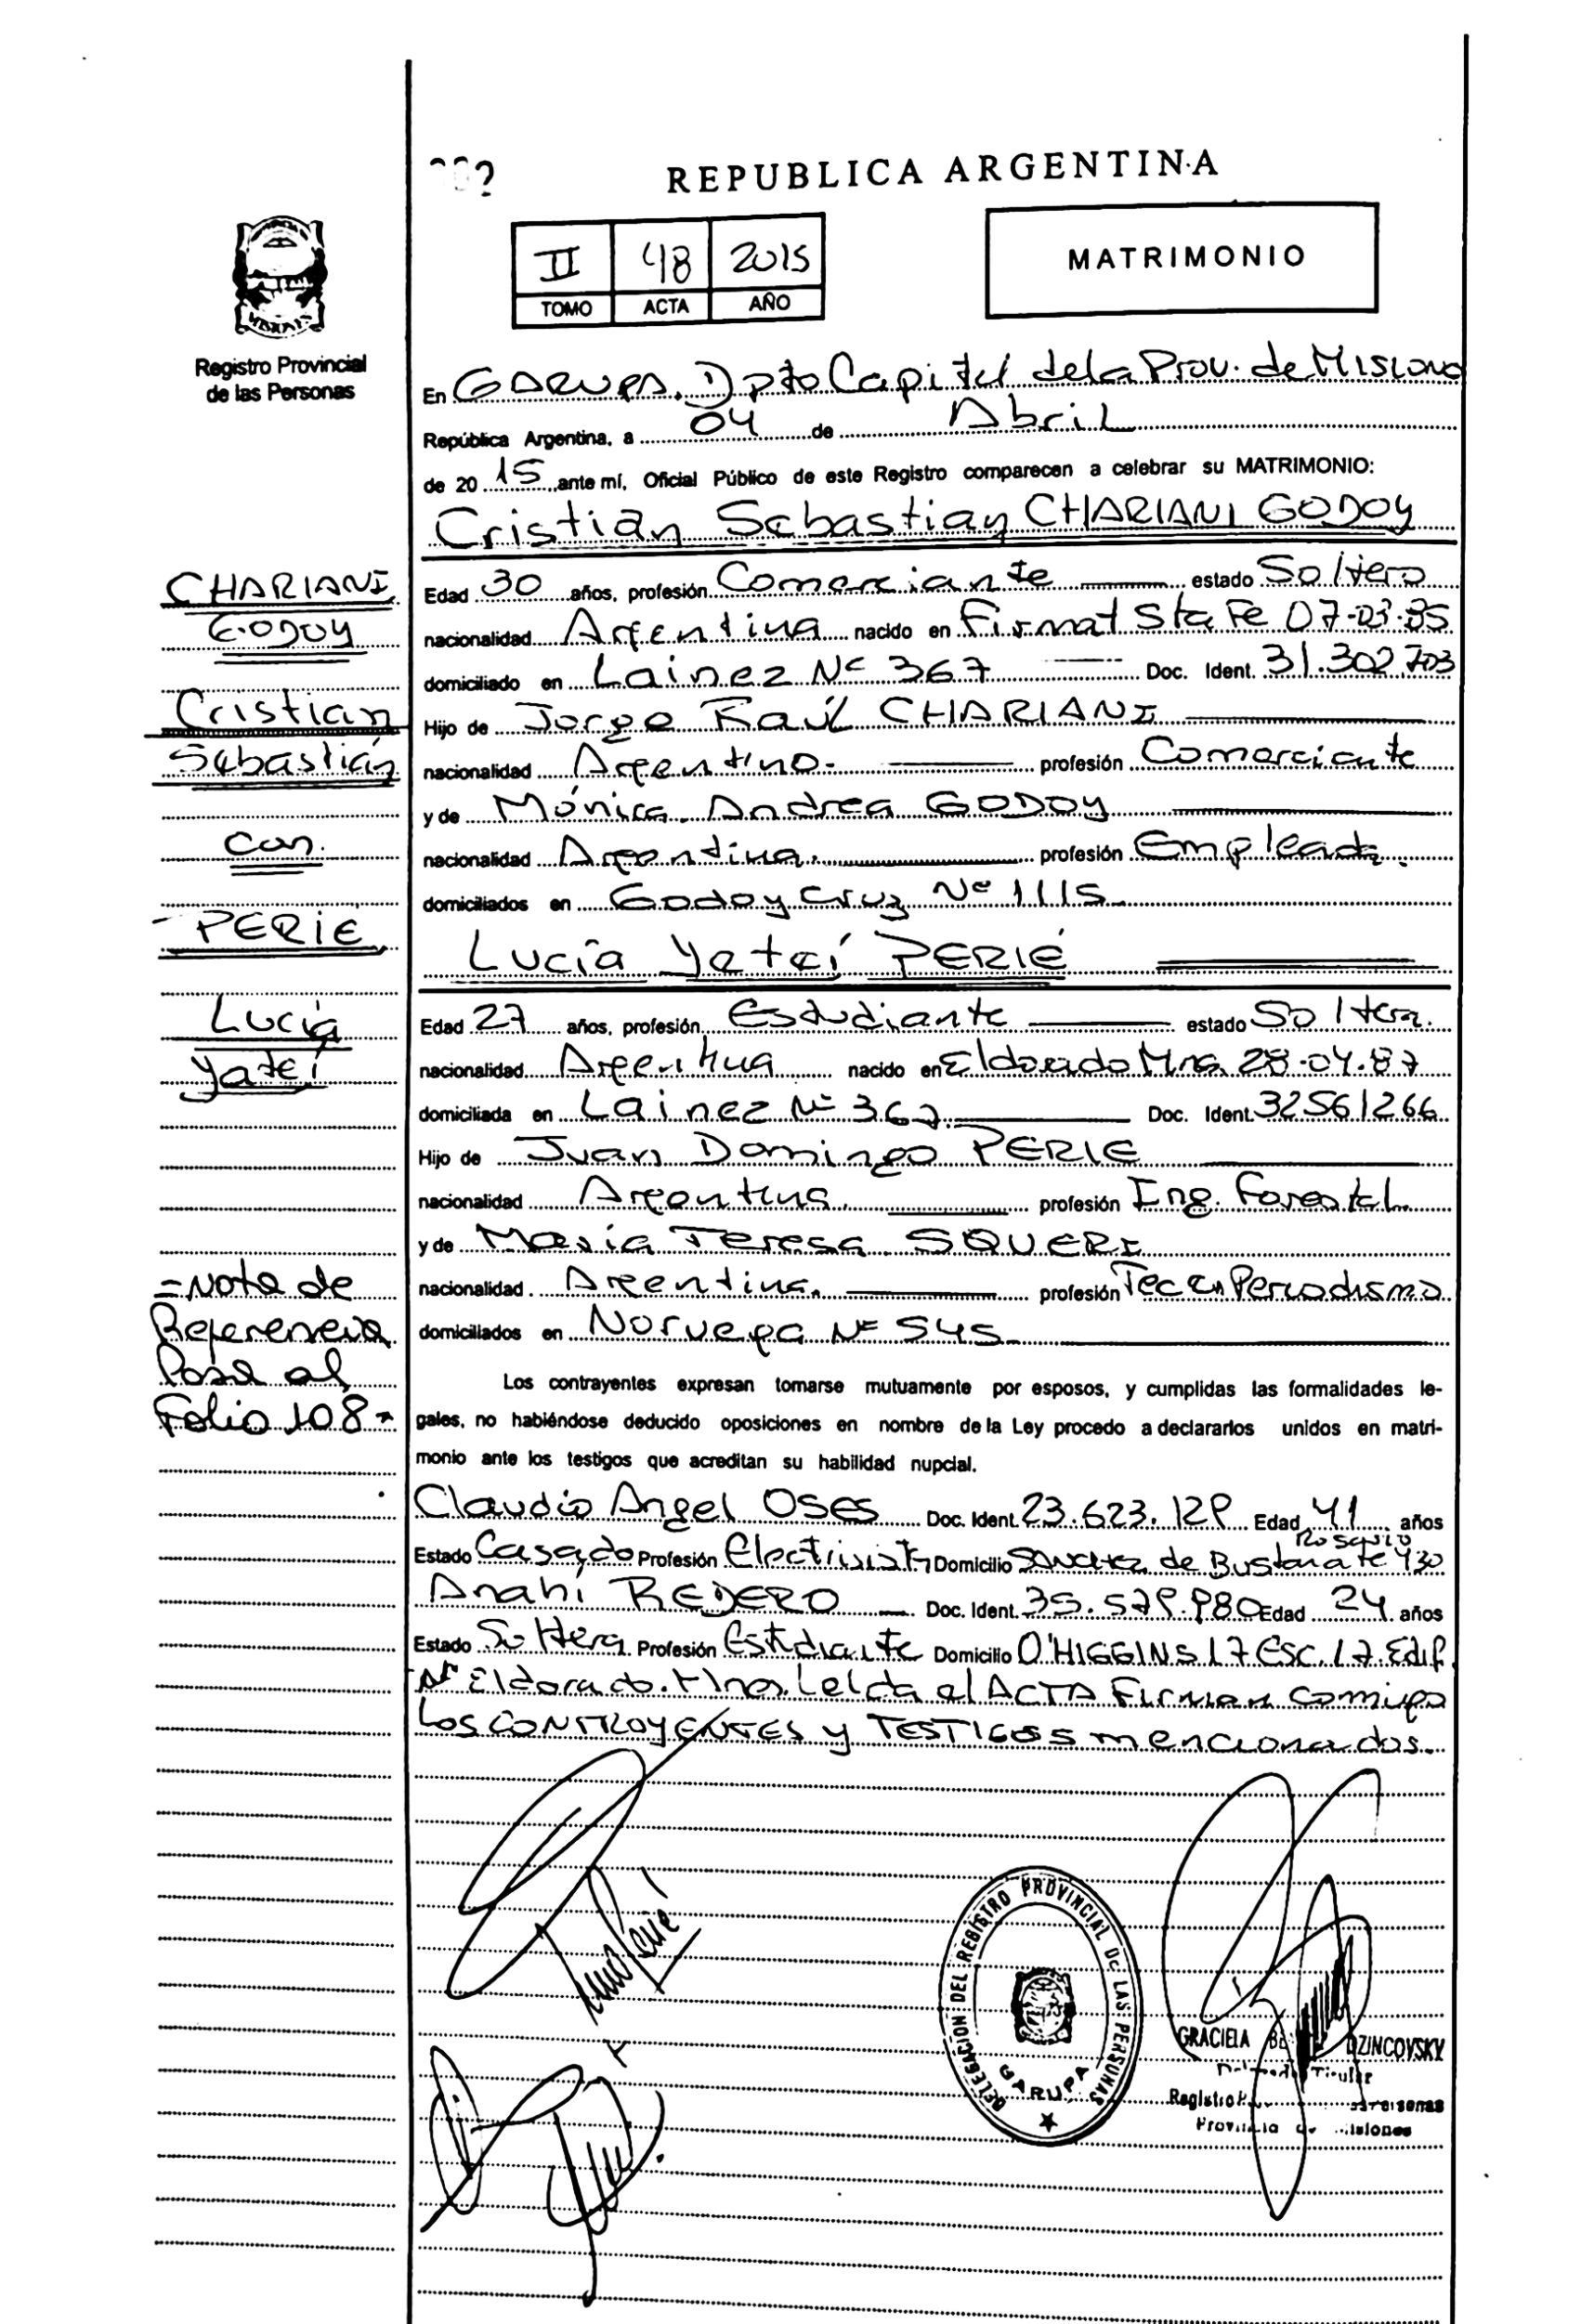 REPUBLICA ARGENTINA
II 48 2015
TOMO ACTA AÑO
MATRIMONIO
Registro Provincial
de las Personas
En GARUPA. Dpto Capital de la Prov. de Misiones
República Argentina, a 04 de Abril
de 20 15 ante mí, Oficial Público de este Registro comparecen a celebrar su MATRIMONIO:
Cristián Sebastian CHARIANI GODOY
Edad 30 años, profesión Comerciante estado Soltero
nacionalidad Argentina nacido en Firmat Sta Fe 07-03-85
domiciliado en Lainez Nº 367 Doc. Ident. 31.302.703
Hijo de Jorge Raúl CHARIANI
nacionalidad Argentino. profesión Comerciante
y de Mónica Andrea GODOY
nacionalidad Argentina. profesión Empleada.
domiciliados en Godoy Cruz Nº 1115
Lucía Yateí PERIÉ
Edad 27 años, profesión Estudiante estado Soltera.
nacionalidad Argentina nacido en Eldorado Mnes. 28-04-87
domiciliada en Lainez Nº 367 Doc. Ident. 32561266
Hijo de Juan Domingo PERIE
nacionalidad Argentina. profesión Ing. Forestal.
y de María Teresa SQUERI
nacionalidad Argentina. profesión Tec en Periodismo
domiciliados en Noruega Nº 545
Los contrayentes expresan tomarse mutuamente por esposos, y cumplidas las formalidades le-
gales, no habiéndose deducido oposiciones en nombre de la Ley procedo a declararlos unidos en matri-
monio ante los testigos que acreditan su habilidad nupcial.
Claudio Angel OSES Doc. Ident. 23.623.129 Edad 41 años
Rosario
Estado Casado Profesión Electricista Domicilio Sanchez de Bustamate 430
Anahi REDERO Doc. Ident. 35.579.980 Edad 24 años
Estado Soltera Profesión Estudiante Domicilio O'HIGGINS 17 Esc. 17. Edif.
Eldorado. Mnes. Leída el ACTA Firman Comigo
Los CONTROYENTES y TESTIGOS mencionados.
CHARIANI
GODOY
Cristian
Sebastián
con.
PERIE
Lucía
Yateí
=Nota de
Referencia
Pasa al
Folio 108=
Lucia Perié
DELEGACION DEL REGISTRO PROVINCIAL DE LAS PERSONAS
GARUPA
GRACIELA DZINCOVSKY
Titular
Registro Personas
Provincia de Misiones